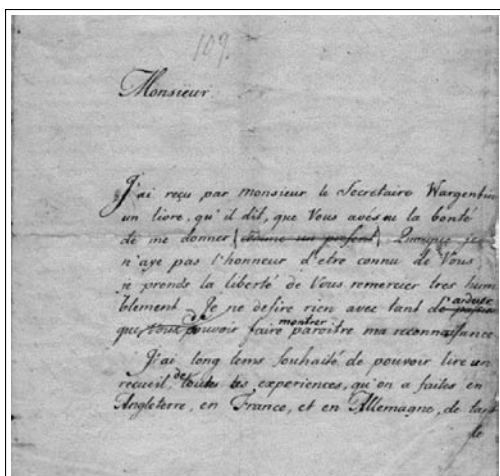 109.
Monsieur.
J'ai reçu par monsieur le Secretaire Wargentin
un livre, qu'il dit, que Vous avés eu la bonté
de me donner (comme un present). Quoique je
n'aye pas l'honneur d'etre connu de Vous
je prends la liberté de Vous remercier tres hum
blement. Je ne desire rien avec tant d'ardeur
que pouvoir faire montrer paroitre ma reconnaissance.
J'ai long tems souhaité de pouvoir lire un
recueil, de toutes les experiences, qu'on a faites en
Angleterre, en France, et en Allemagne, de tant
de